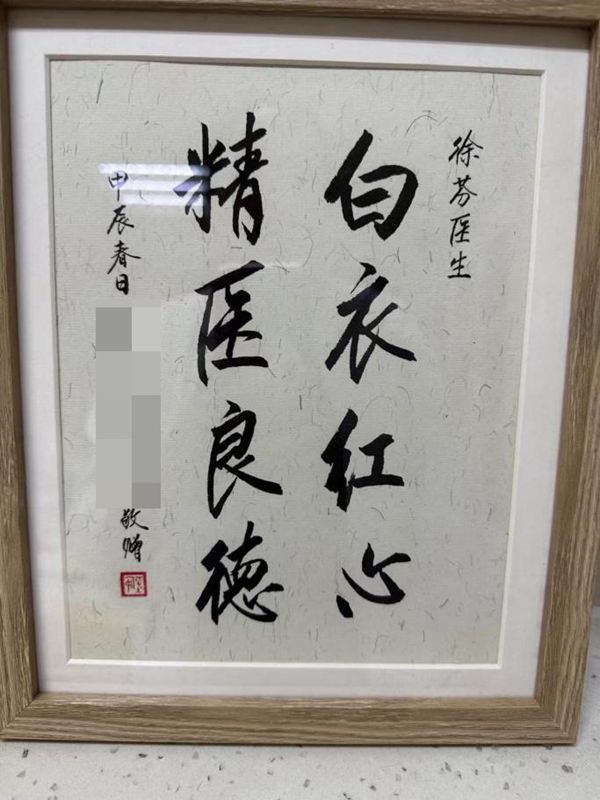 徐芬医生
白衣红心
精医良德
甲辰春日
敬赠